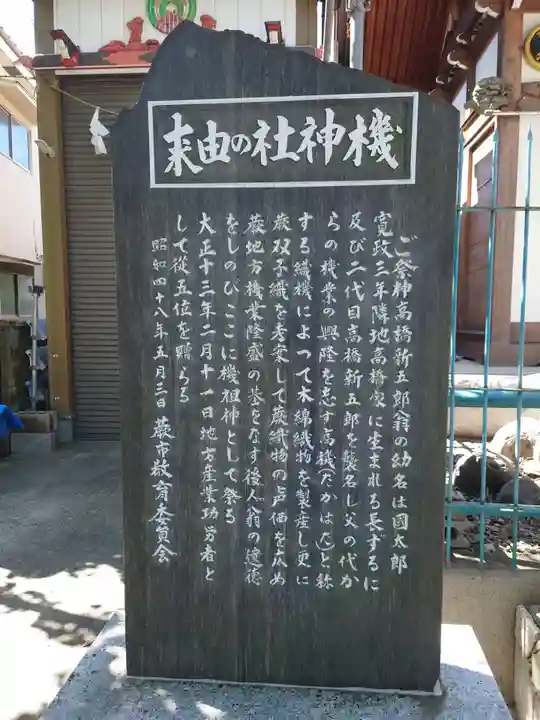 機神社の由来
ご祭神高橋新五郎翁の幼名は國太郎
寛政三年隣地高橋家に生まれる長ずるに
及び二代目高橋新五郎を襲名し父の代か
らの機業の興隆を志す高機(たかはた)と称
する織機によって木綿織物を製産し更に
蕨双子織を考案して蕨織物の声価を広め
蕨地方機業隆盛の基をなす後人翁の遺徳
をしのびここに機祖神として祭る
大正十三年二月十一日地方産業功労者と
して従五位を贈らる
昭和四十八年五月三日 蕨市教育委員会